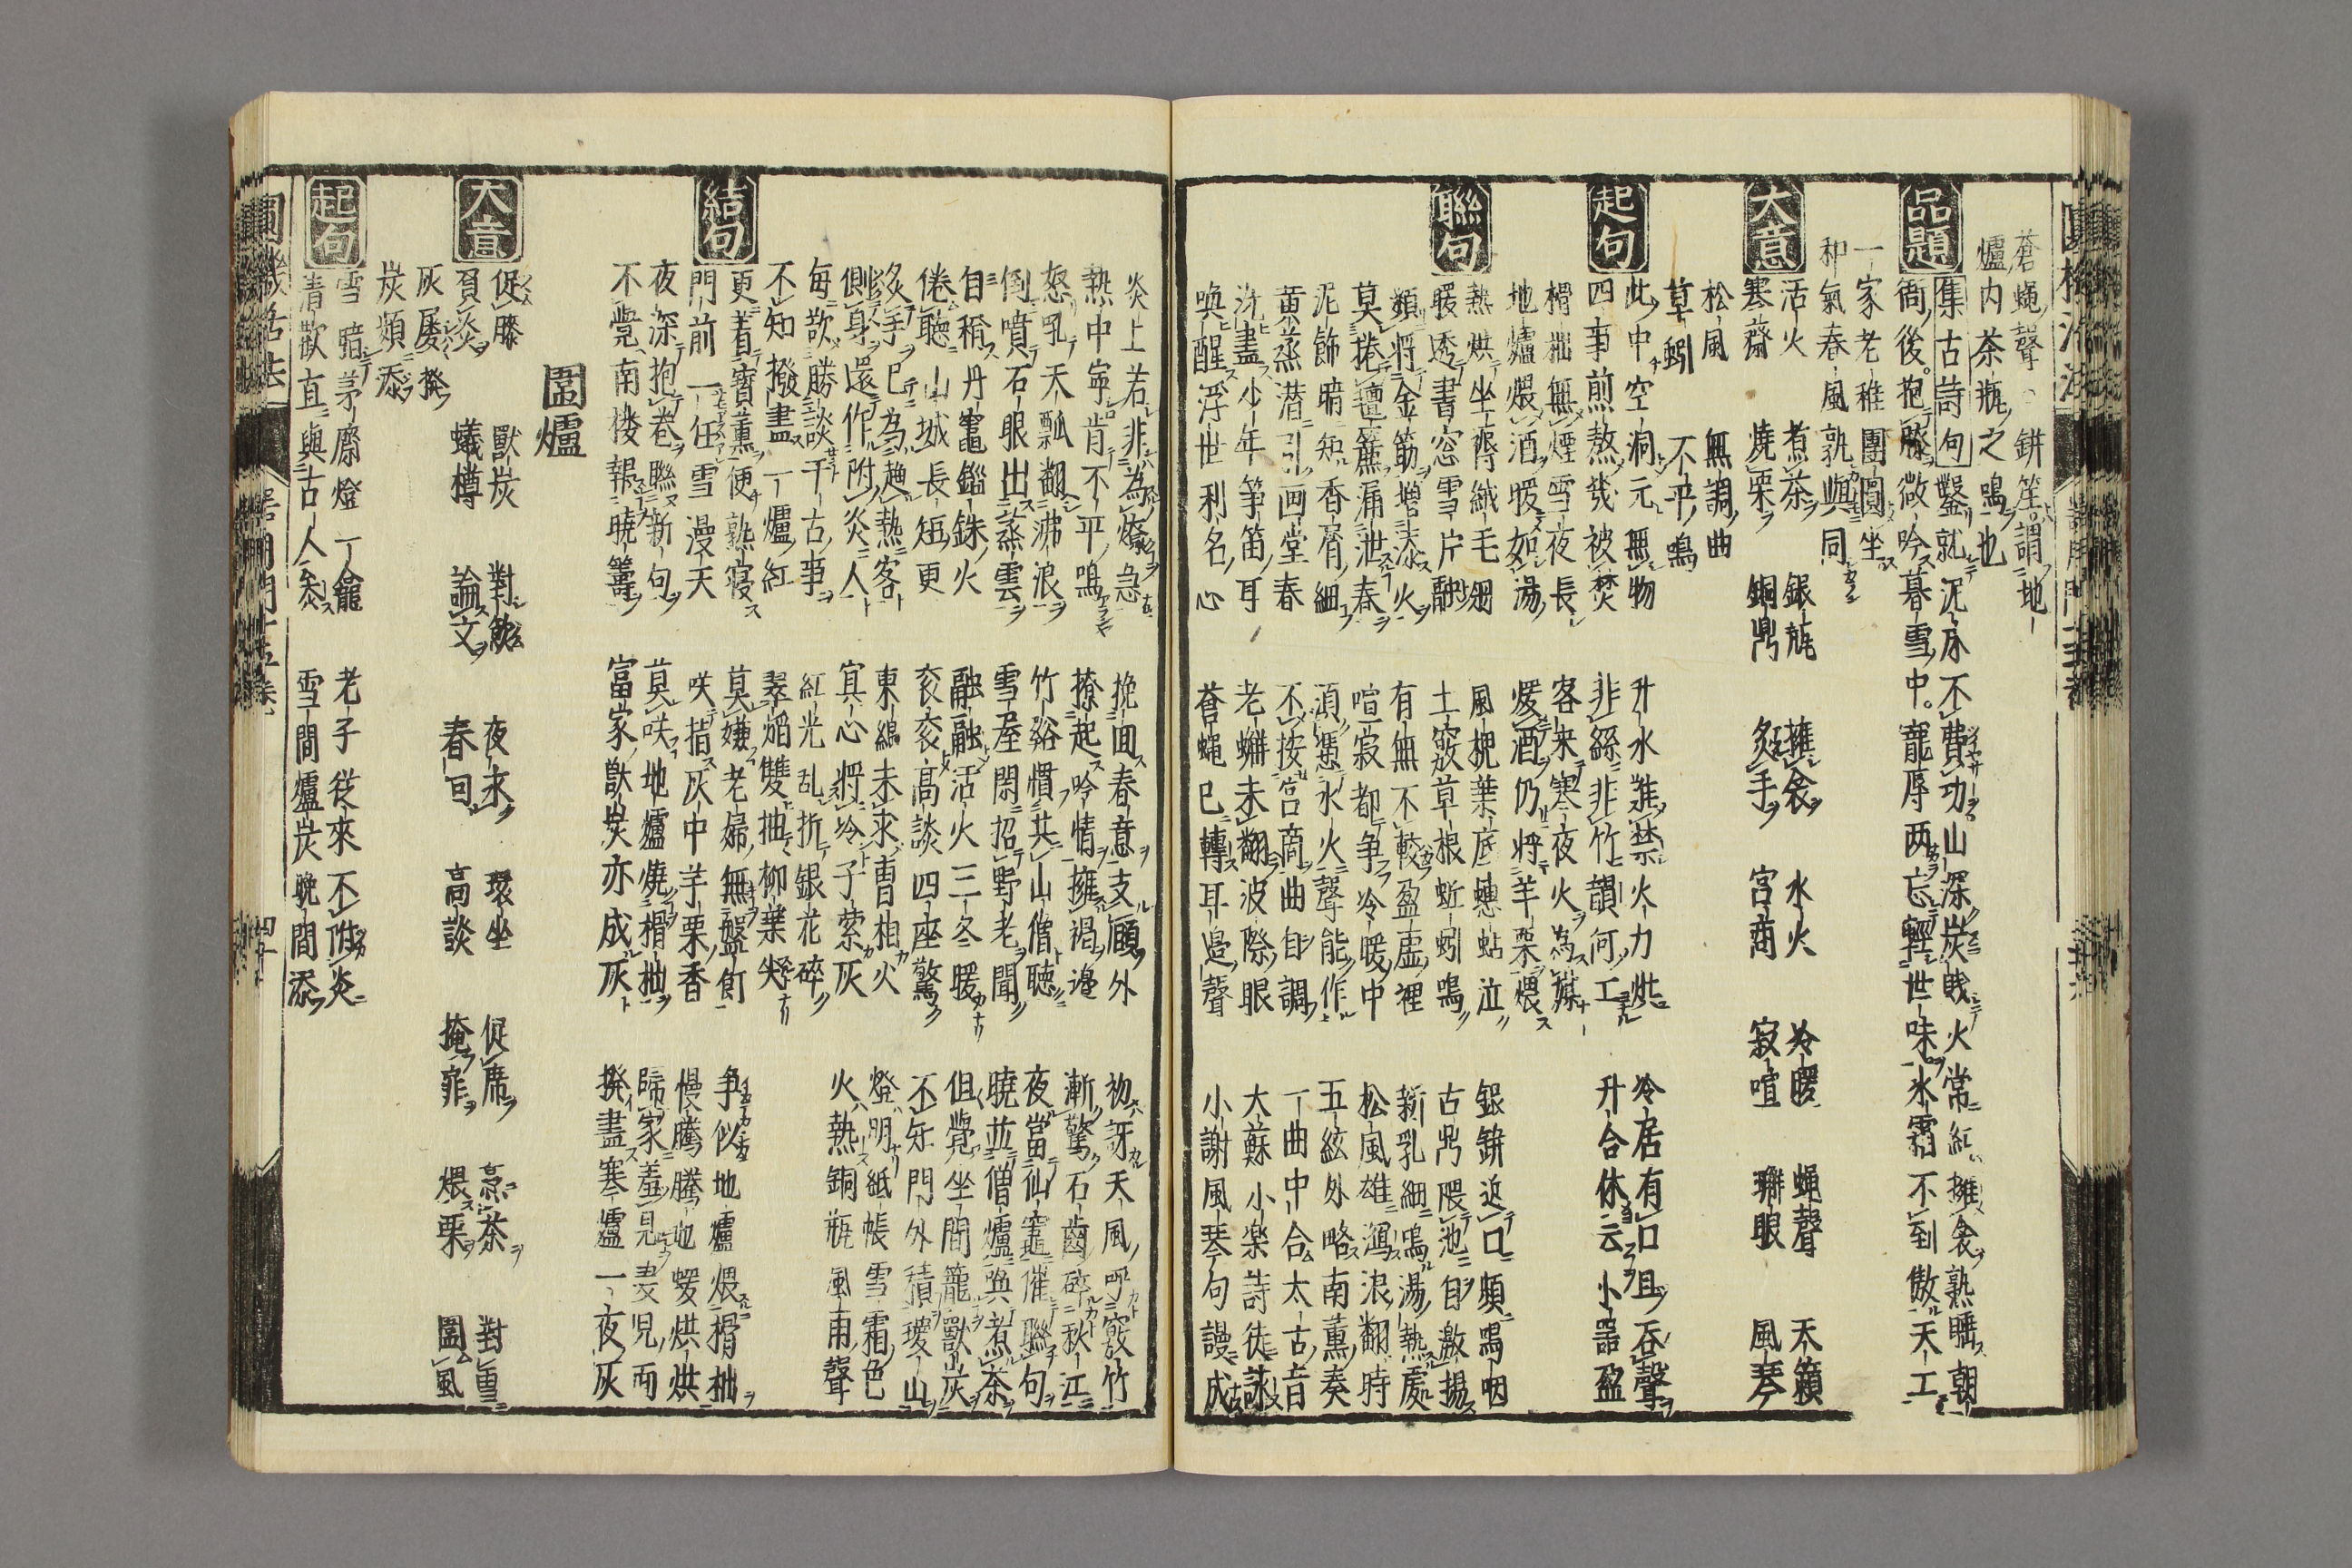 蒼蝿聲鉼笙謂地
爐内茶瓶之鳴也
品題
集古詩句
鑿就泥床不費功山深炭賤火常紅擁衾熟睡朝
衙後抱膝微吟暮雪中寵辱两忘輕世味氷霜不到傲天工
一家老稚團圓坐
和氣春風孰與同
大意
活火 煮茶 銀瓶 擁衾 水火 冷暖 蝿聲 天籟
寒齋 燒栗 銅鼎 炙手 宮商 寂喧 蠏眼 風琴
松風 無調曲
草蚓 不平鳴
起句
此中空洞元無物 升水難禁火力烘 冷居有口且吞聲
四事煎熬幾被焚 非絲非竹韻何工 升合休云小器盈
榾柮無煙雪夜長 客来寒夜火為媒
地爐煨酒暖如湯 煖酒仍將羊栗煨
聯句
熱烘坐褥絨毛 風槐葉底蟪蛄泣 銀鉼近口頻鳴咽
暖透書窓雪片融 土竅草根蚯蚓鳴 古鼎隈池自激揚
類將金筋增添火 有無不較盈虛裡 新乳細鳴湯熱處
莫捲氊簾漏泄春 喧寂都争冷暖中 松風雄瀉浪翻時
泥飾暗知香屑細 湏憑水火聲能作 五絃外略南薫奏
薫蒸潜引画堂春 不按宮商曲自調 一曲中合太古音
洗盡少年筝笛耳 老蠏未翻波際眼 大蘇小楽詩徒詠
喚醒浮世利名心 蒼蝿已轉耳邉聲 小謝風琴句謾成
炎上若非為燎急 挽回春意支頤外 初訝天風呼竅竹
熱中寧肯不平鳴 撩起吟情擁褐邊 漸驚石齒碎秋江
怒吼天瓢翻沸浪 竹谿慣共山僧聴 夜當仙竈催聯句
倒噴石眼出蒸雲 雪屋閑招野老聞 曉並僧爐喚煮茶
自稱丹竈鎦銖火 融融活火三冬暖 但覺坐間籠獸炭
倦聴山城長短更 衮衮高談四座驚 不知門外積瓊山
炙手已為趨熱客 東綿未求曺相火 燈明紙帳雪霜色
側身還作附炎人 寘心將冷子萦灰 火熱銅瓶風雨聲
毎歎勝談千古事 紅光乱折銀花碎
不知撥盡一爐紅 翠焰雙抽柳葉尖
結句
更着寶薫便熟寝 莫嫌老婦無盤飣 争似地爐煨榾柮
門前一任雪漫天 咲指灰中芋栗香 慢騰騰地暖烘烘
夜深抱巻聯新句 莫咲地爐燒榾柮 歸家羞見妻兒面
不覺南楼報曉籌 富家獸炭亦成灰 撥盡寒爐一夜灰
圍爐
大意
促膝 獸炭 對飲 夜永 環坐 促席 烹茶 對雪
負炎 蟻樽 論文 春回 高談 掩扉 煨栗 圍氣
灰屡撥
炭頻添
起句
雪暗茅齋燈一龕 老子従來不附炎
清歡直與古人参 雪間爐炭晩間添